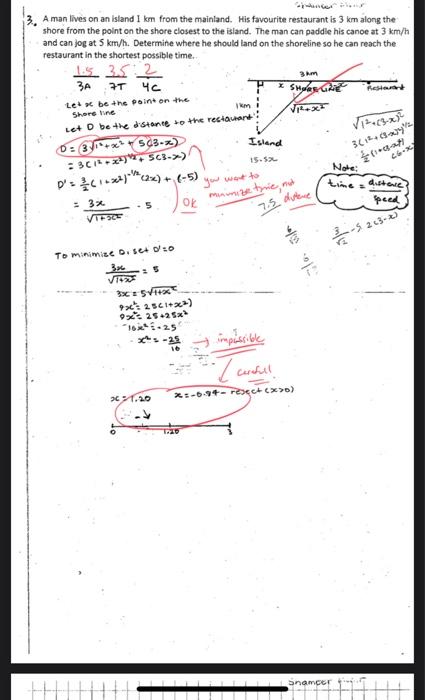 3. A man lives on an island 1 km from the mainland. His favourite restaurant is 3 km along the
shore from the point on the shore closest to the island. The man can paddle his canoe at 3 km/h
and can jog at 5 km/h. Determine where he should land on the shoreline so he can reach the
restaurant in the shortest possible time.
1.5 3.5 2
3A 7T 4C
3km
x SHORELINE Restaurant
1km
√1²+x²
Island
Let x be the point on the
Shore line
Let D be the distance to the restaurant
D = 3√1²+x² + 5(3-x)
= 3(1²+x²)^1/2 + 5(3-x)
D' = 3/2(1+x²)^-1/2(2x) + (-5)
= 3x/√1+x² - 5
OK
you want to
minimize time, not
distance
15-5x
7.5
√1²+(3-x)²
3(1²+(3-x)²)^1/2
Note:
time = distance
speed
6/√5
To minimize D, set D'=0
3x/√1+x² = 5
3x = 5√1+x²
9x² = 25(1+x²)
9x² = 25+25x²
-16x² = 25
x² = -25/16
→ impossible
careful!
x=1.20 x=-0.94- reject (x>0)
0 1.20 3